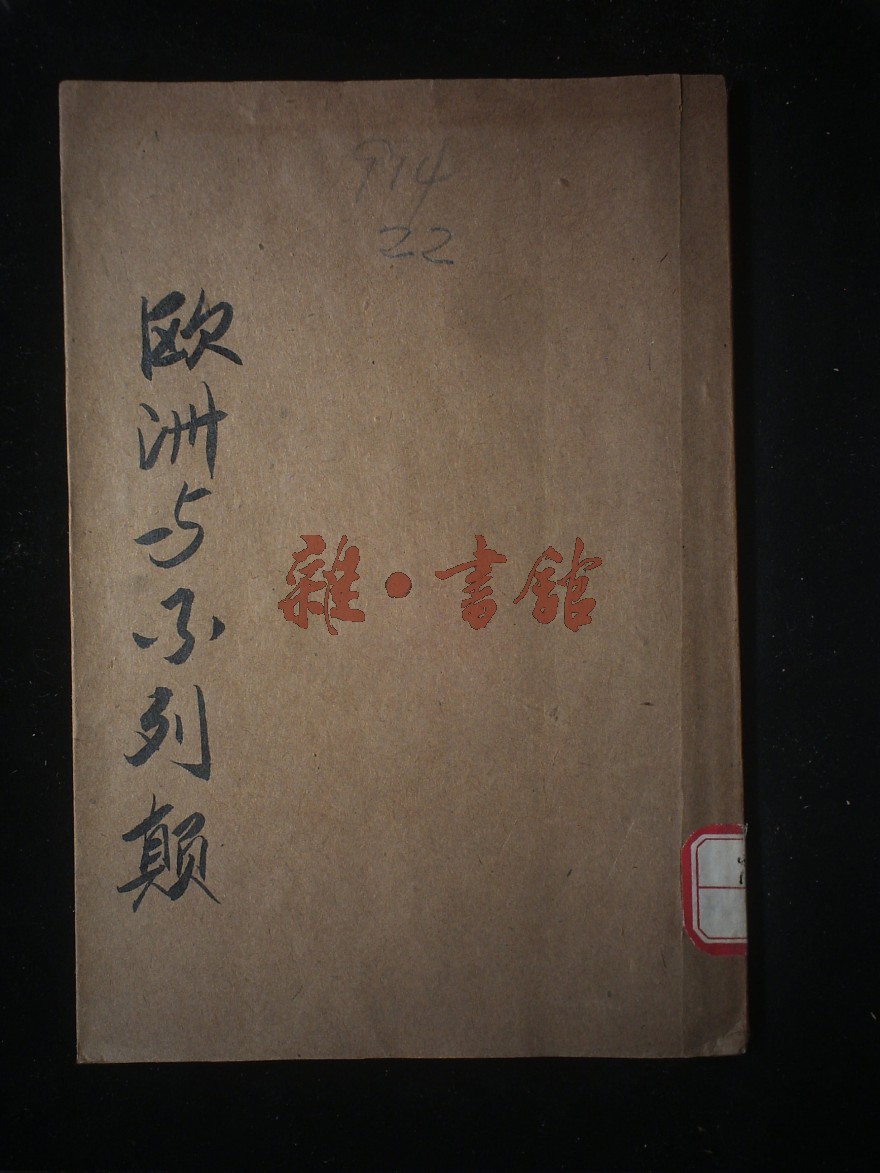 974
22
欧洲与不列颠
雜·書館